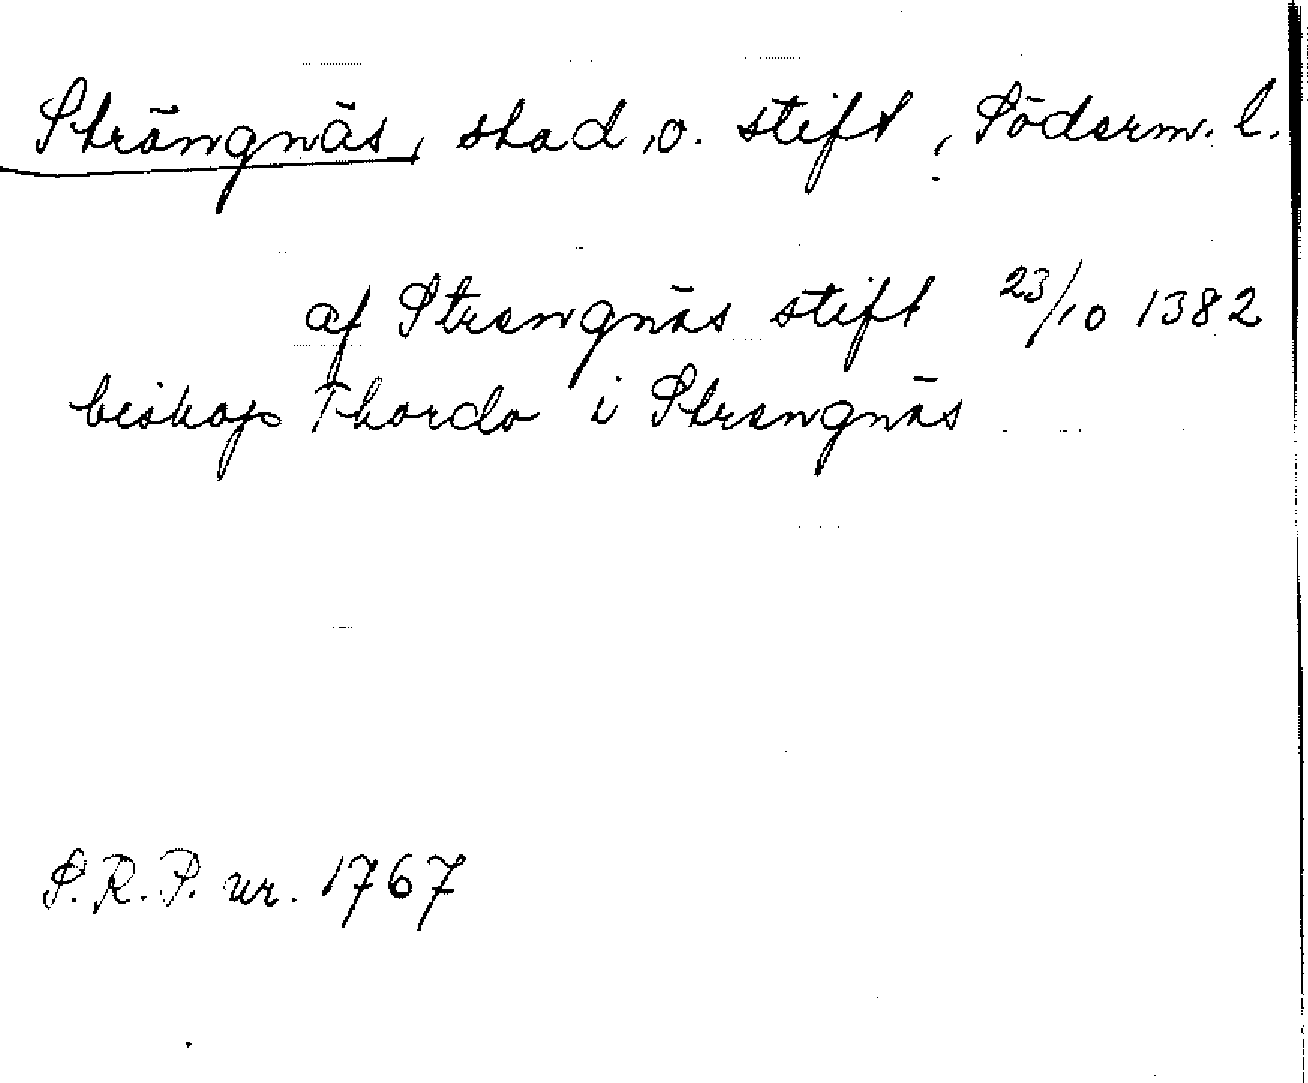 Strängnäs, stad o. stift, Söderm. l.
af Strengnäs stift 23/10 1382
biskop Thordo i Strengnäs
S.R.P. nr. 1767